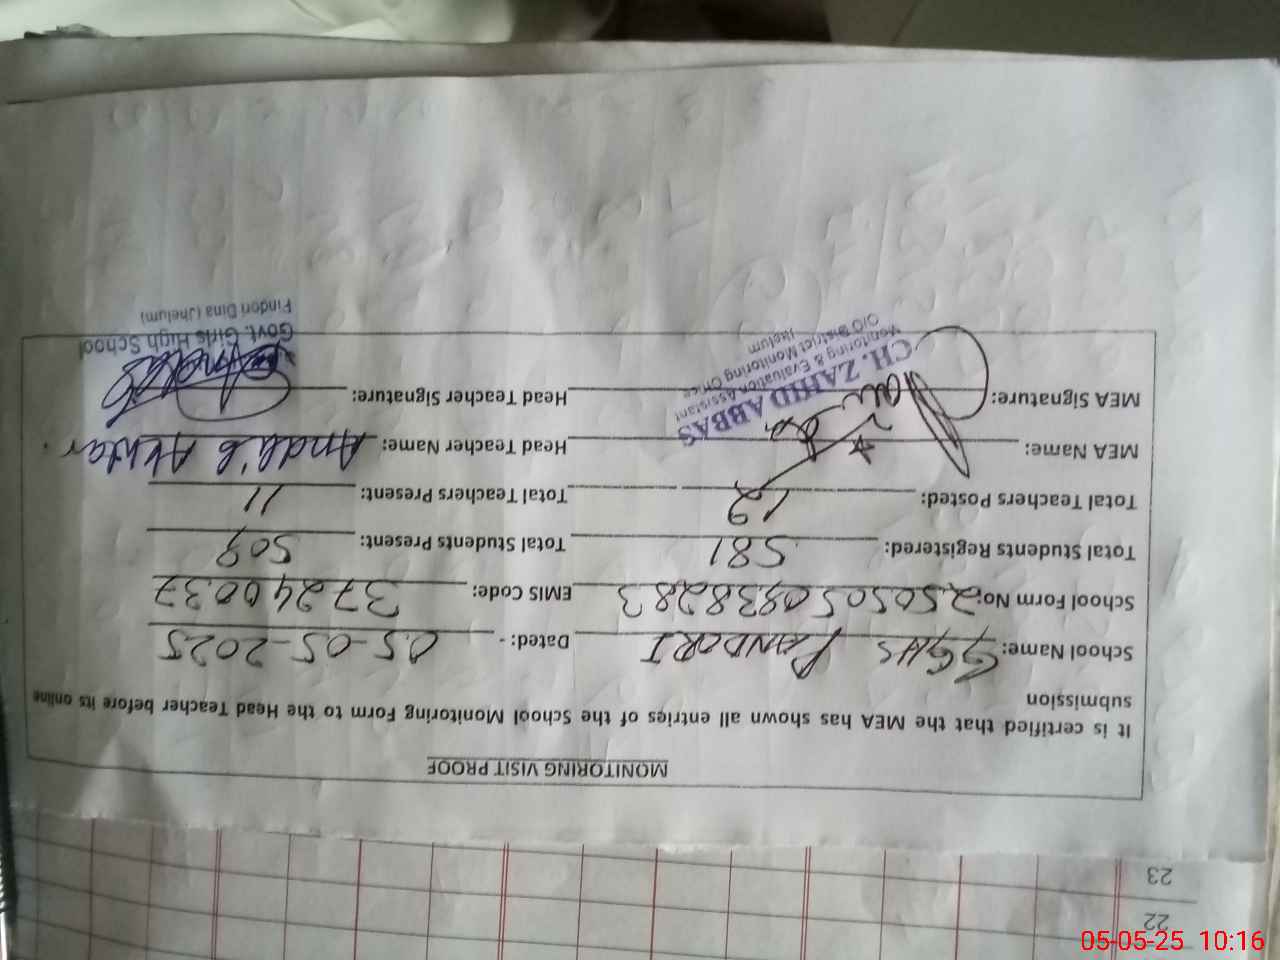 MONITORING VISIT PROOF
It is certified that the MEA has shown all entries of the School Monitoring Form to the Head Teacher before its online
submission
School Name: GGHS PANDORI Dated: - 05-05-2025
School Form No: 25050509838283 EMIS Code: 37240037
Total Students Registered: 581 Total Students Present: 509
Total Teachers Posted: 12 Total Teachers Present: 11
MEA Name: Head Teacher Name: Andlib Akhtar.
MEA Signature: Head Teacher Signature:
CH. ZAHID ABBAS
Monitoring & Evaluation Assistant
O/O District Monitoring Office
Jhelum
Govt. Girls High School
Pindori Dina (Jhelum)
23
22
05-05-25 10:16